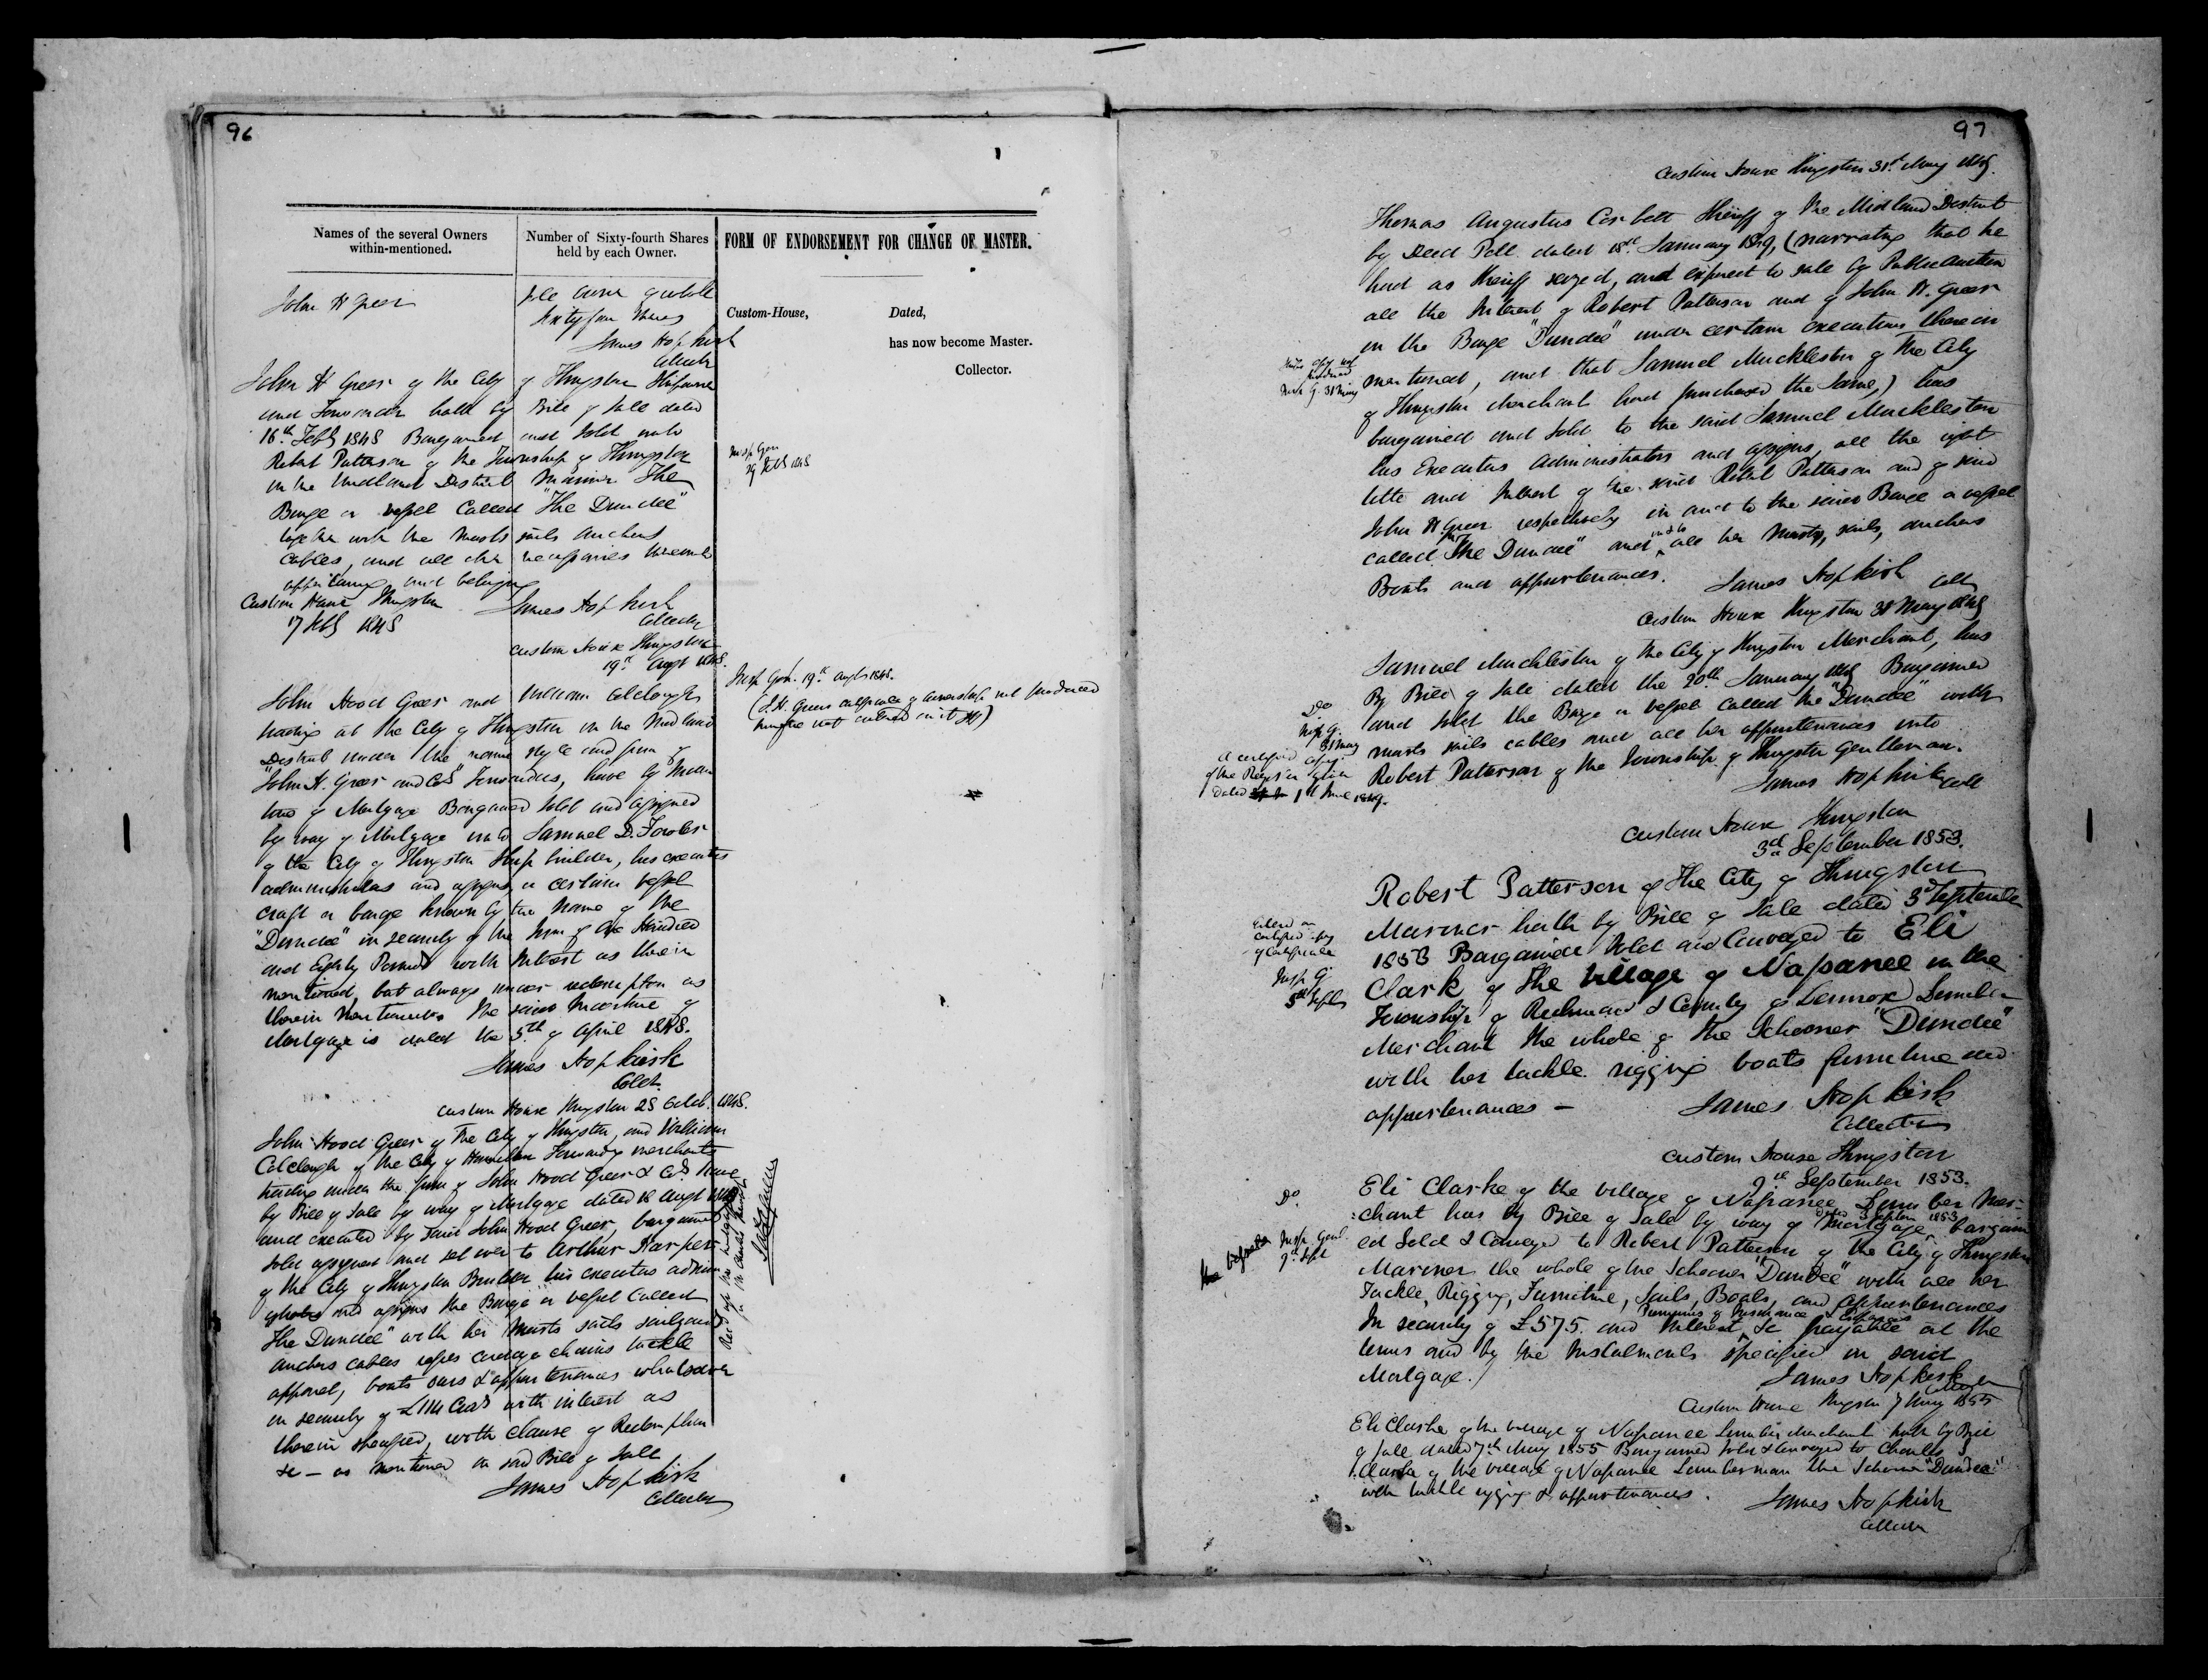 96
Names of the several Owners
within-mentioned.
Number of Sixty-fourth Shares
held by each Owner.
FORM OF ENDORSEMENT FOR CHANGE OF MASTER.
John H Greer
Sole owner of whole
Sixty four Shares
James Hopkirk
Collector
Custom-House,
Dated,
has now become Master.
Collector.
John H Greer of the City of Kingston Shipowner
and Forwarder hath by Bill of Sale dated
16th Feby 1848 Bargained and Sold unto
Robert Patterson of the Township of Kingston
in the Midland District Mariner The
Barge or vessel Called "The Dundee"
together with the Masts sails Anchors
Cables, and all other necessaries thereunto
appertaining and belonging
Custom House Kingston
17 Feby 1848
James Hopkirk
Collector
Insp Gen
29 Feby 1848
Custom House Kingston
19th Augt 1848.
John Hood Greer and William Colclough
trading at the City of Kingston in the Midland
District under the name style and firm of
"John H. Greer and Co" Forwarders, have by Inden
ture of Mortgage Bargained Sold and assigned
by way of Mortgage unto Samuel D. Fowler
of the City of Kingston Ship builder, his executors
administrators and assigns, a certain vessel
craft or barge known by the name of the
"Dundee" in security of the sum of One Hundred
and Eighty Pounds with Interest as therein
mentioned, but always under redemption as
therein mentioned the said Indenture of
Mortgage is dated the 5th of April 1848.
James Hopkirk
Collr.
Insp Gen. 19th Augt 1848.
(J.H. Greers certificate of ownership not produced
therefore not entered on it JH)
Custom House Kingston 28 Octob. 1848.
John Hood Greer of the City of Kingston, and William
Colclough of the City of Hamilton Forwarding merchants
trading under the firm of John Hood Greer & Co. have
by Bill of Sale by way of Mortgage dated 18 Augt 1848
and executed by said John Hood Greer, bargained
sold assigned and set over to Arthur Harper
of the City of Kingston Builder his executors admin
istrators and assigns the Barge or vessel Called
"The Dundee" with her Masts sails sailyards
anchors cables ropes cordage chains tackle
apparel, boats oars & appurtenances whatsoever
in security of £114 with interest as
therein specified, with clause of Redemption
&c – as mentioned in said Bill of Sale
James Hopkirk
Collector
97
Custom House Kingston 31st May 1849.
Thomas Augustus Corbett Sheriff of the Midland District
by Deed Poll dated 18th January 1849, (narrating that he
had as Sheriff seized, and exposed to sale by Public Auction
all the Interest of Robert Patterson and of John H. Greer
in the Barge "Dundee" under certain executions therein
mentioned, and that Samuel Muckleston of the City
of Kingston Merchant had purchased the Same,) has
bargained and Sold to the said Samuel Muckleston
his Executors Administrators and assigns, all the right
title and Interest of the said Robert Patterson and of said
John H. Greer respectively in and to the said Barge or vessel
called "The Dundee" and in & to all her Masts, sails, anchors
Boats and appurtenances.
James Hopkirk
Collr
Custom House Kingston 31 May 1849
Samuel Muckleston of the City of Kingston Merchant, has
By Bill of Sale dated the 20th January 1849 Bargained
and Sold the Barge or vessel called the "Dundee" with
masts sails cables and all her appurtenances unto
Robert Patterson of the Township of Kingston Gentleman.
James Hopkirk Coll
Do
Insp G.
31 May
A certified copy
of the Register given
dated 1st June 1849.
Custom House Kingston
3d September 1853.
Robert Patterson of the City of Kingston
Mariner hath by Bill of Sale dated 3d September
1853 Bargained Sold and Conveyed to Eli
Clark of the Village of Napanee in the
Township of Richmond & County of Lennox Lumber
Merchant the whole of the Schooner "Dundee"
with her tackle rigging boats furniture and
appurtenances –
James Hopkirk
Collector
certified copy
of Certificate
Insp G.
5th Septr
Custom House Kingston
9th September 1853.
Eli Clarke of the village of Napanee Lumber Mer-
:chant has by Bill of Sale by way of Mortgage, dated 3 Septem 1853 bargain
ed Sold & Conveyed to Robert Patterson of the City of Kingston
Mariner the whole of the Schooner "Dundee" with all her
Tackle, Rigging, Furniture, Sails, Boats, and appurtenances
In security of £575. and Interest, Premiums of Insurance & expenses &c payable at the
terms and by the Instalments specified in said
Mortgage.
James Hopkirk
Collector
Do.
Insp Genl.
9th Sept
Custom House Kingston 7 May 1855
Eli Clarke of the village of Napanee Lumber Merchant hath by Bill
of Sale dated 7th May 1855 Bargained Sold & Conveyed to Charles
Clarke of the village of Napanee Lumberman the Schooner "Dundee"
with tackle rigging & appurtenances.
James Hopkirk
Collector